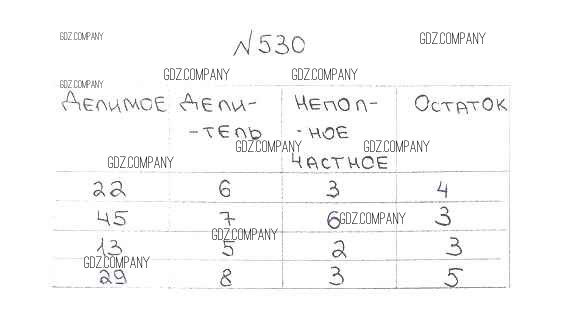 GDZ.COMPANY
№530
GDZ.COMPANY
GDZ.COMPANY GDZ.COMPANY
GDZ.COMPANY
ДЕЛИМОЕ ДЕЛИ- НЕПОЛ- ОСТАТОК
-ТЕЛЬ -НОЕ
GDZ.COMPANY GDZ.COMPANY
GDZ.COMPANY ЧАСТНОЕ
22 6 3 4
45 7 6 GDZ.COMPANY 3
GDZ.COMPANY
13 5 2 3
GDZ.COMPANY
29 8 3 5